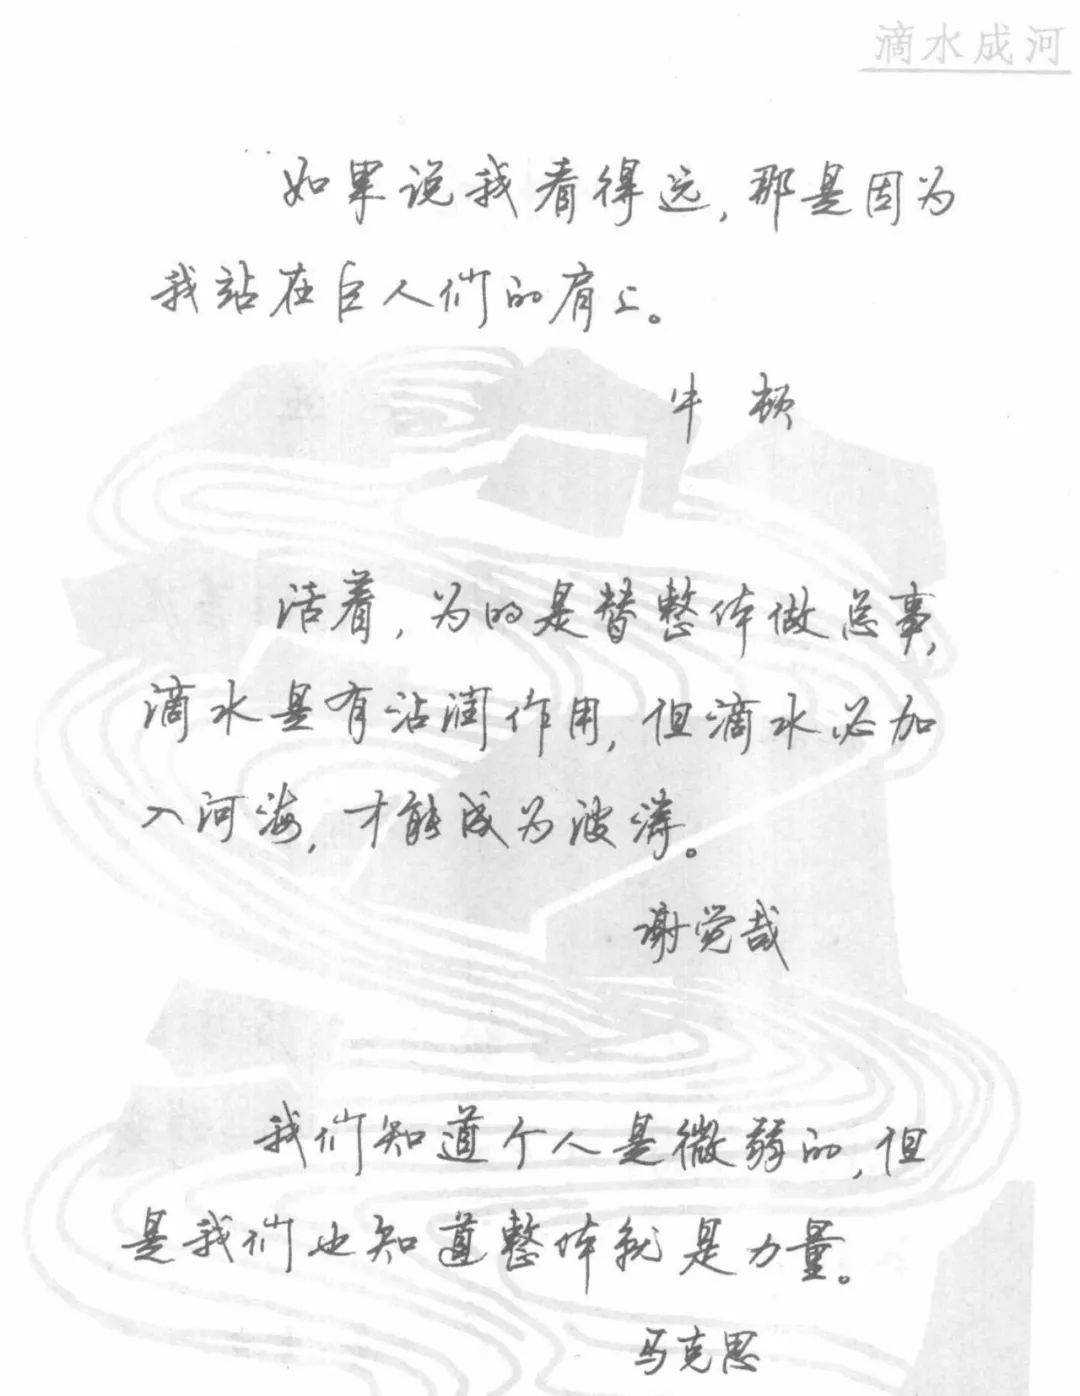 滴水成河
如果说我看得远,那是因为
我站在巨人们的肩上。
牛顿
活着,为的是替整体做点事,
滴水是有沾润作用,但滴水必加
入河海,才能成为波涛。
谢觉哉
我们知道个人是微弱的,但
是我们也知道整体就是力量。
马克思